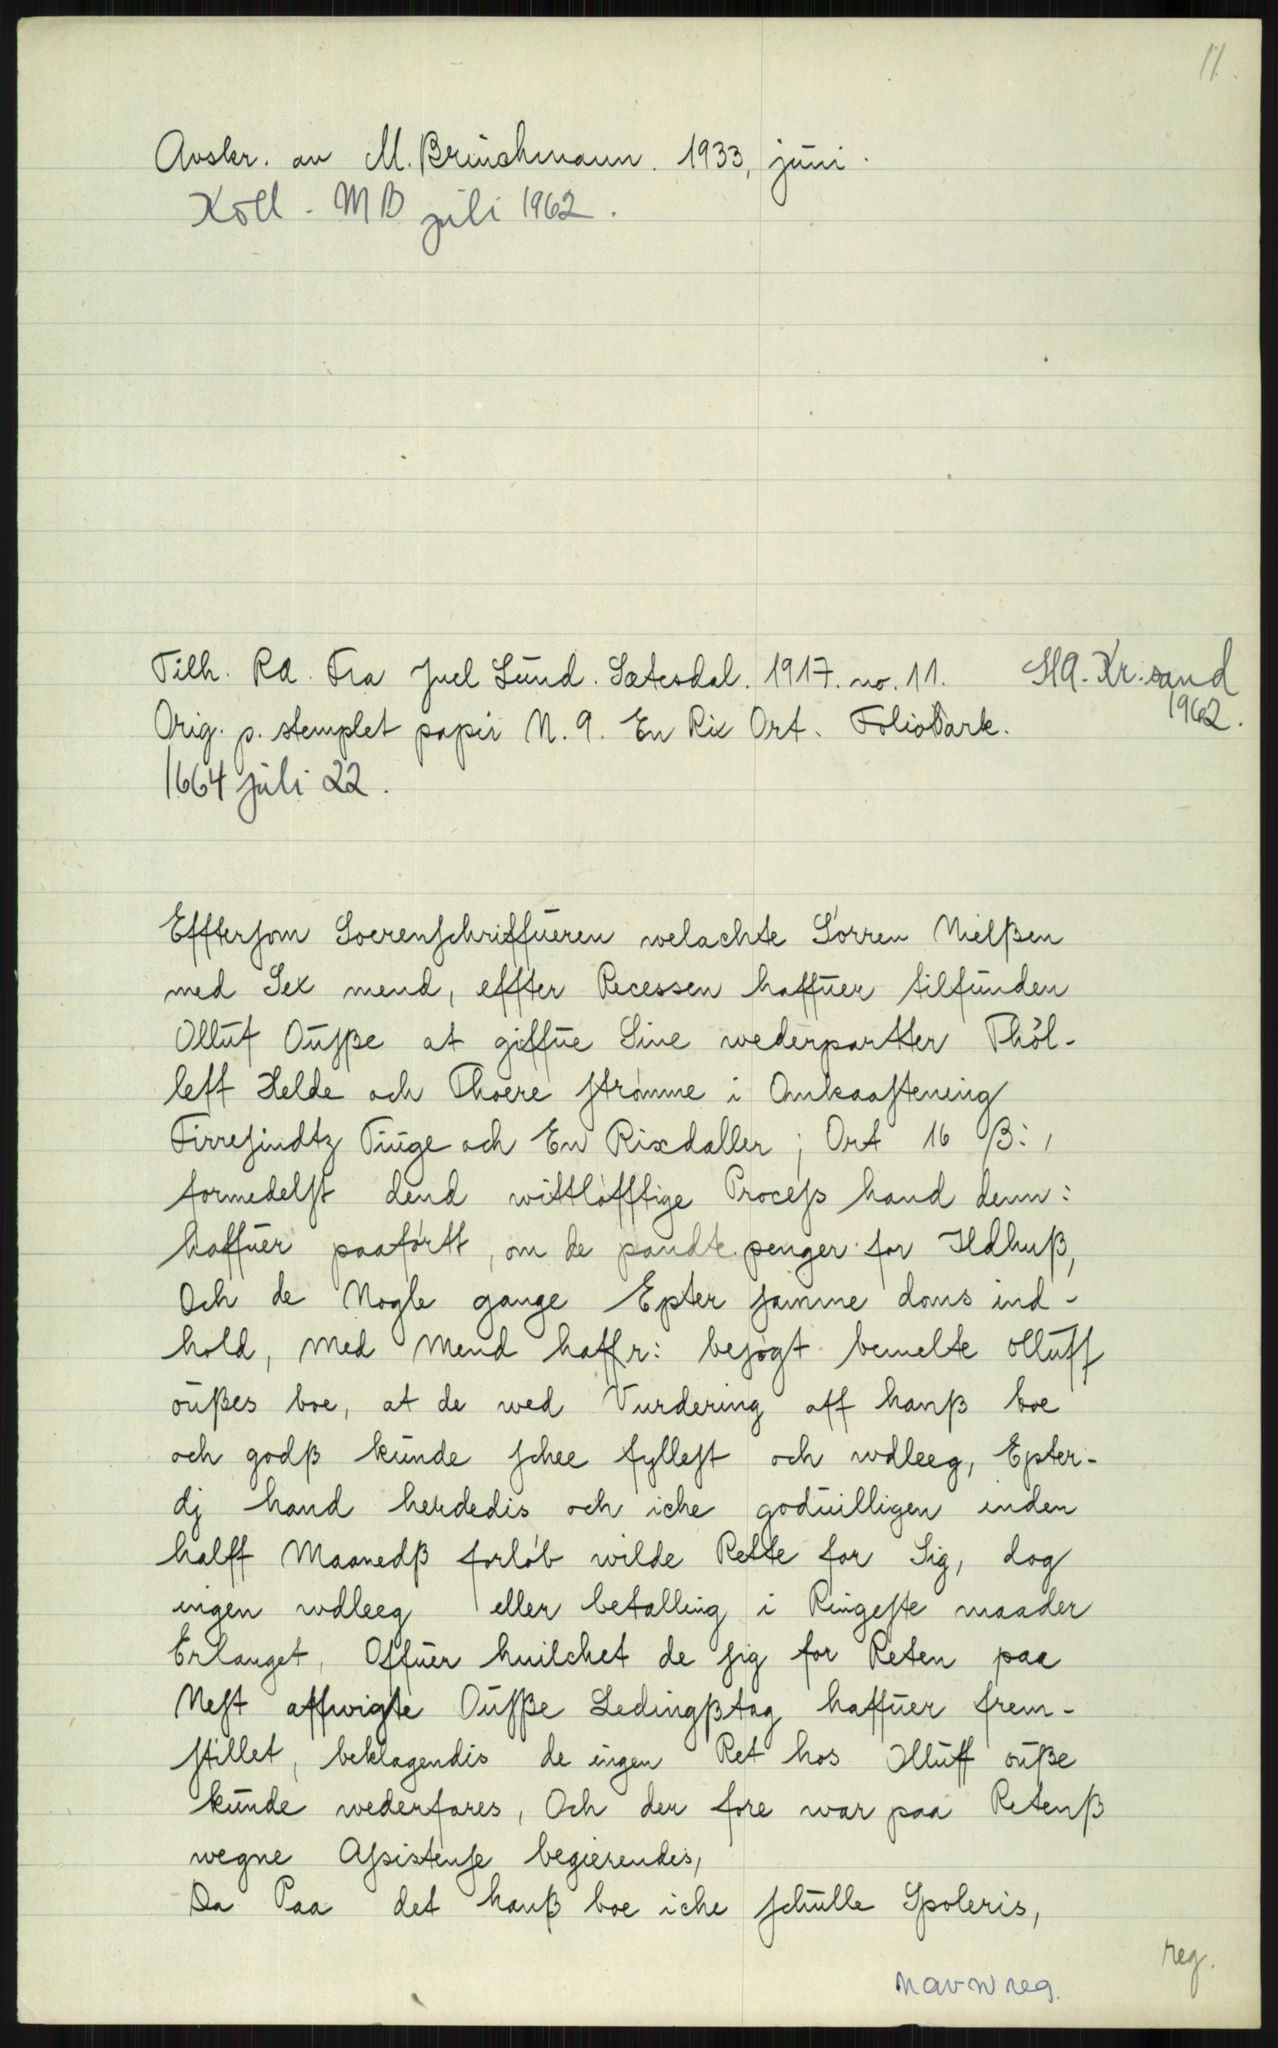 11.
Avskr. av M. Brinchmann. 1933, juni.
Koll. MB juli 1962.
Tilh. RA. Fra Juel Lund. Sætesdal. 1917. no. 11. StA. Kr.sand
1962.
Orig. p. stemplet papir N. 9. En Rix Ort. Folioark.
1664 juli 22.
Efftersom Soerenschriffueren welachte Sörren Nielßen
med Sex mend, effter Recessen haffuer tilfunden
Olluf Oufße at giffue Sine wederpartter Thöl-
leff Helde och Thoere strömme i Omkaastening
Firresindtz Tiuge och En Rixdaller; Ort 16 ß:,
formedelst dend wittlöfftige Process hand denn:
haffuer paafört, om de pandte penger for Ildhuß,
Och de Nogle gange Epter samme doms ind-
hold, Med Mend haffr: besögt bemelte Olluff
oußes boe, at de wed Vurdering aff hanß boe
och godß kunde schee fyllest och wdleeg, Epter-
dj hand herdedis och iche goduilligen inden
halff Maanedß forlöb wilde Rette for Sig, dog
ingen wdleeg eller betalling i Ringeste maader
Erlanget, Offuer huilchet de sig for Reten paa
Nest affwigte Oufße Ledingßtag haffuer frem-
stillet, beklagendis de ingen Ret hos Olluff ouße
kunde wederfares, Och der fore war paa Retenß
wegne Assistense begierendes,
Da Paa det hanß boe iche schulle Spoleris,
reg.
navnreg.